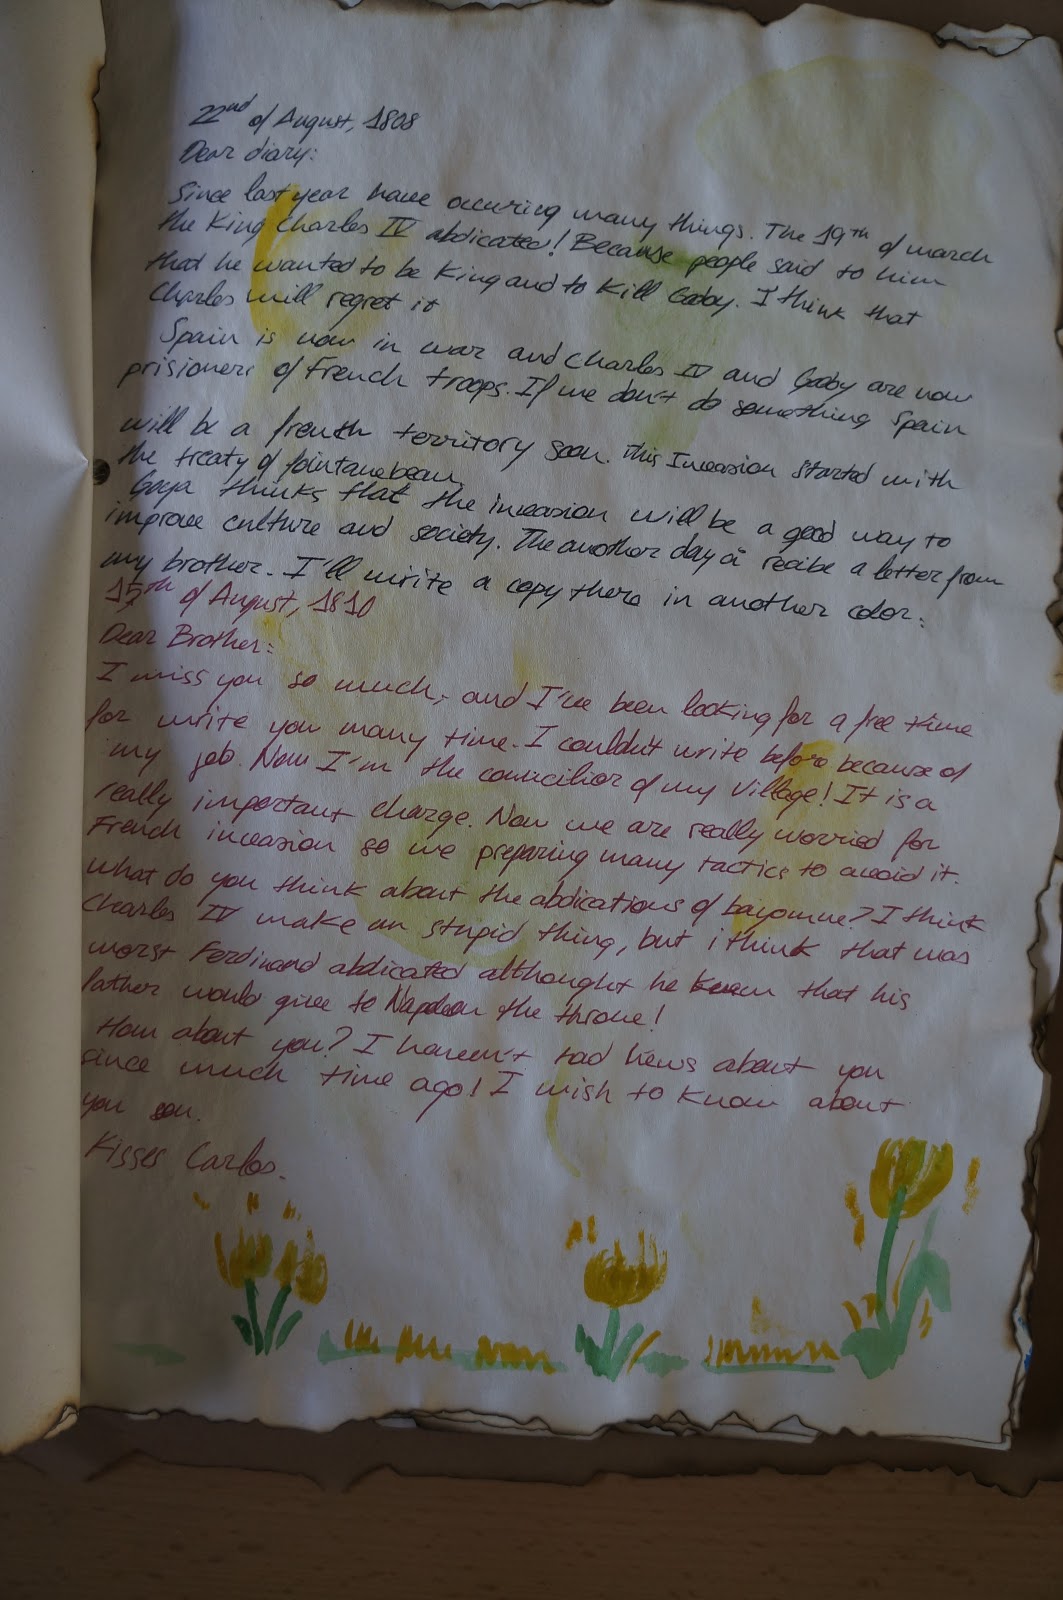 22nd of August, 1808
Dear diary:
Since last year have occuring many things. The 19th of march
the King Charles IV abdicated! Because people said to him
that he wanted to be King and to Kill Gody. I think that
Charles will regret it
Spain is now in war and Charles IV and Gody are now
prisioners of French troops. If we don't do something Spain
will be a french territory soon. This Invasion started with
the treaty of fointanebean
Goya thinks that the invasion will be a good way to
improve culture and society. The another day a recibe a letter from
my brother. I'll write a copy there in another color:
15th of August, 1810
Dear Brother:
I miss you so much, and I've been looking for a free time
for write you many time. I couldn't write before because of
my job. Now I'm the councilior of my village! It is a
really important charge. Now we are really worried for
French invasion so we preparing many tactics to avoid it.
what do you think about the abdications of bayonne? I think
Charles IV make an stupid thing, but i think that was
worst Ferdinand abdicated althought he knew that his
father would give to Napoleon the throne!
How about you? I haven't had news about you
since much time ago! I wish to know about
you
Kisses Carlos.